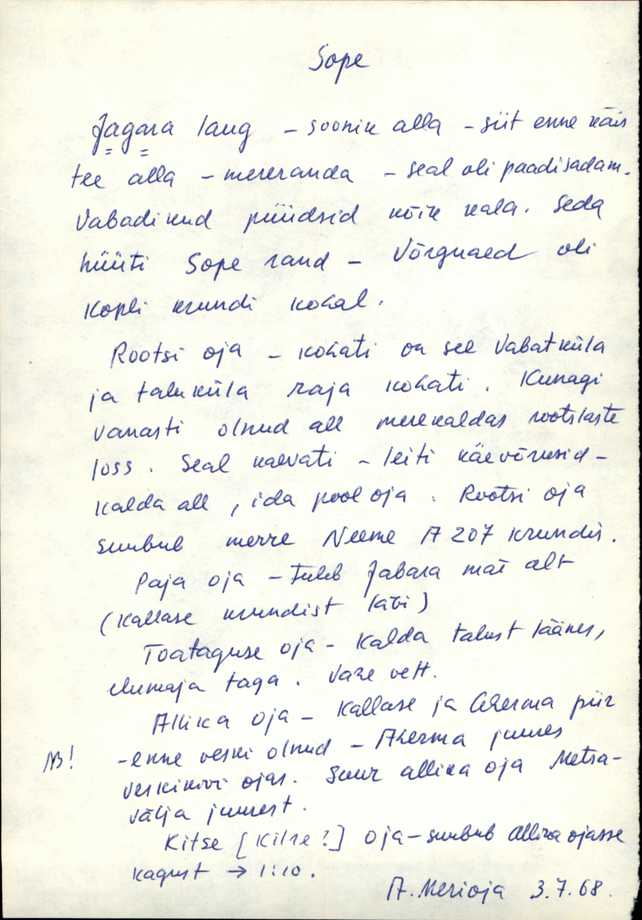 Sope
Jagara laug – soonik alla – siit enne käis
tee alla – mereranda – seal oli paadisadam.
Vabadikud püüdsid kõik kala. Seda
hüüti Sope rand – Võrguaed oli
Kopli krundi kohal.
Rootsi oja – kohati on see Vabatküla
ja taluküla raja kohati. Kunagi
vanasti olnud all merekaldas rootslaste
loss. Seal kaevati – leiti käevõrusid –
kalda all, ida pool oja. Rootsi oja
suubub merre Neeme A 207 krundis.
Paja oja – tuleb Jabara mäe alt
(Kallase krundist läbi)
Toataguse oja – Kalda talust läänes,
elumaja taga. Vähe vett.
Allika oja – Kallase ja Aherma piir
NB! – enne veski olnud – Aherma juures
veskikivi ojas. Suur allika oja Metsa-
välja juurest.
Kitse [Kilse?] oja – suubub Allika ojasse
kagust → 1:10.
A. Merioja 3.7.68.